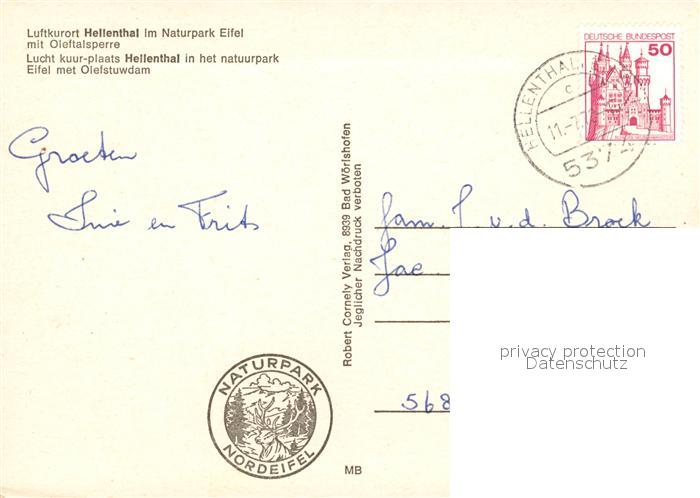 Luftkurort Hellenthal im Naturpark Eifel
mit Oleftalsperre
Lucht kuur-plaats Hellenthal in het natuurpark
Eifel met Olefstuwdam
DEUTSCHE BUNDESPOST
50
HELLENTHAL
c
11.-7.7
5374
Groeten
en Frits
Robert Cornely Verlag, 8939 Bad Wörishofen
Jeglicher Nachdruck verboten
fam. J. v.d. Brock
Jac
568
privacy protection
Datenschutz
NATURPARK
NORDEIFEL
MB